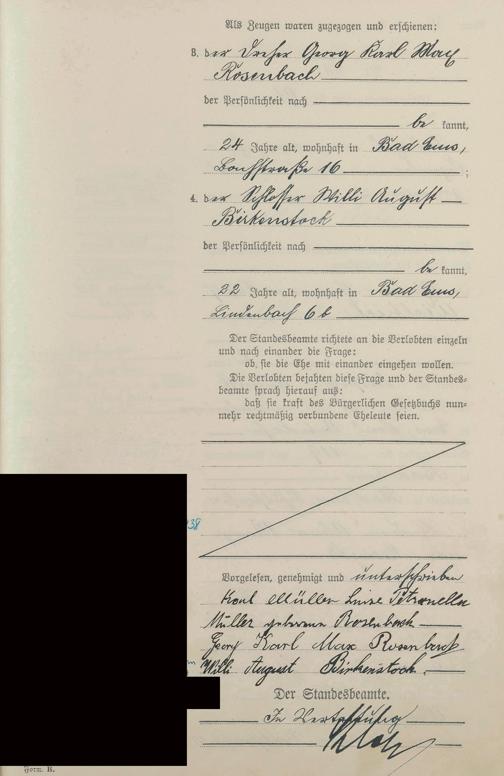 Als Zeugen waren zugezogen und erschienen:
3. der Dreher Georg Karl Max
Rosenbach
der Persönlichkeit nach
be kannt,
24 Jahre alt, wohnhaft in Bad Ems,
Bachstraße 16 ;
4. der Schlosser Willi August
Birkenstock
der Persönlichkeit nach
be kannt,
22 Jahre alt, wohnhaft in Bad Ems,
Lindenbach 6b
Der Standesbeamte richtete an die Verlobten einzeln
und nach einander die Frage:
ob sie die Ehe mit einander eingehen wollen.
Die Verlobten bejahten diese Frage und der Standes-
beamte sprach hierauf aus:
daß sie kraft des Bürgerlichen Gesetzbuchs nun-
mehr rechtmäßig verbundene Eheleute seien.
38
Vorgelesen, genehmigt und unterschrieben
Karl Müller Luise Petronella
Müller geborene Rosenbach
Georg Karl Max Rosenbach
Willi August Birkenstock.
Der Standesbeamte.
In Vertretung
Form. B.